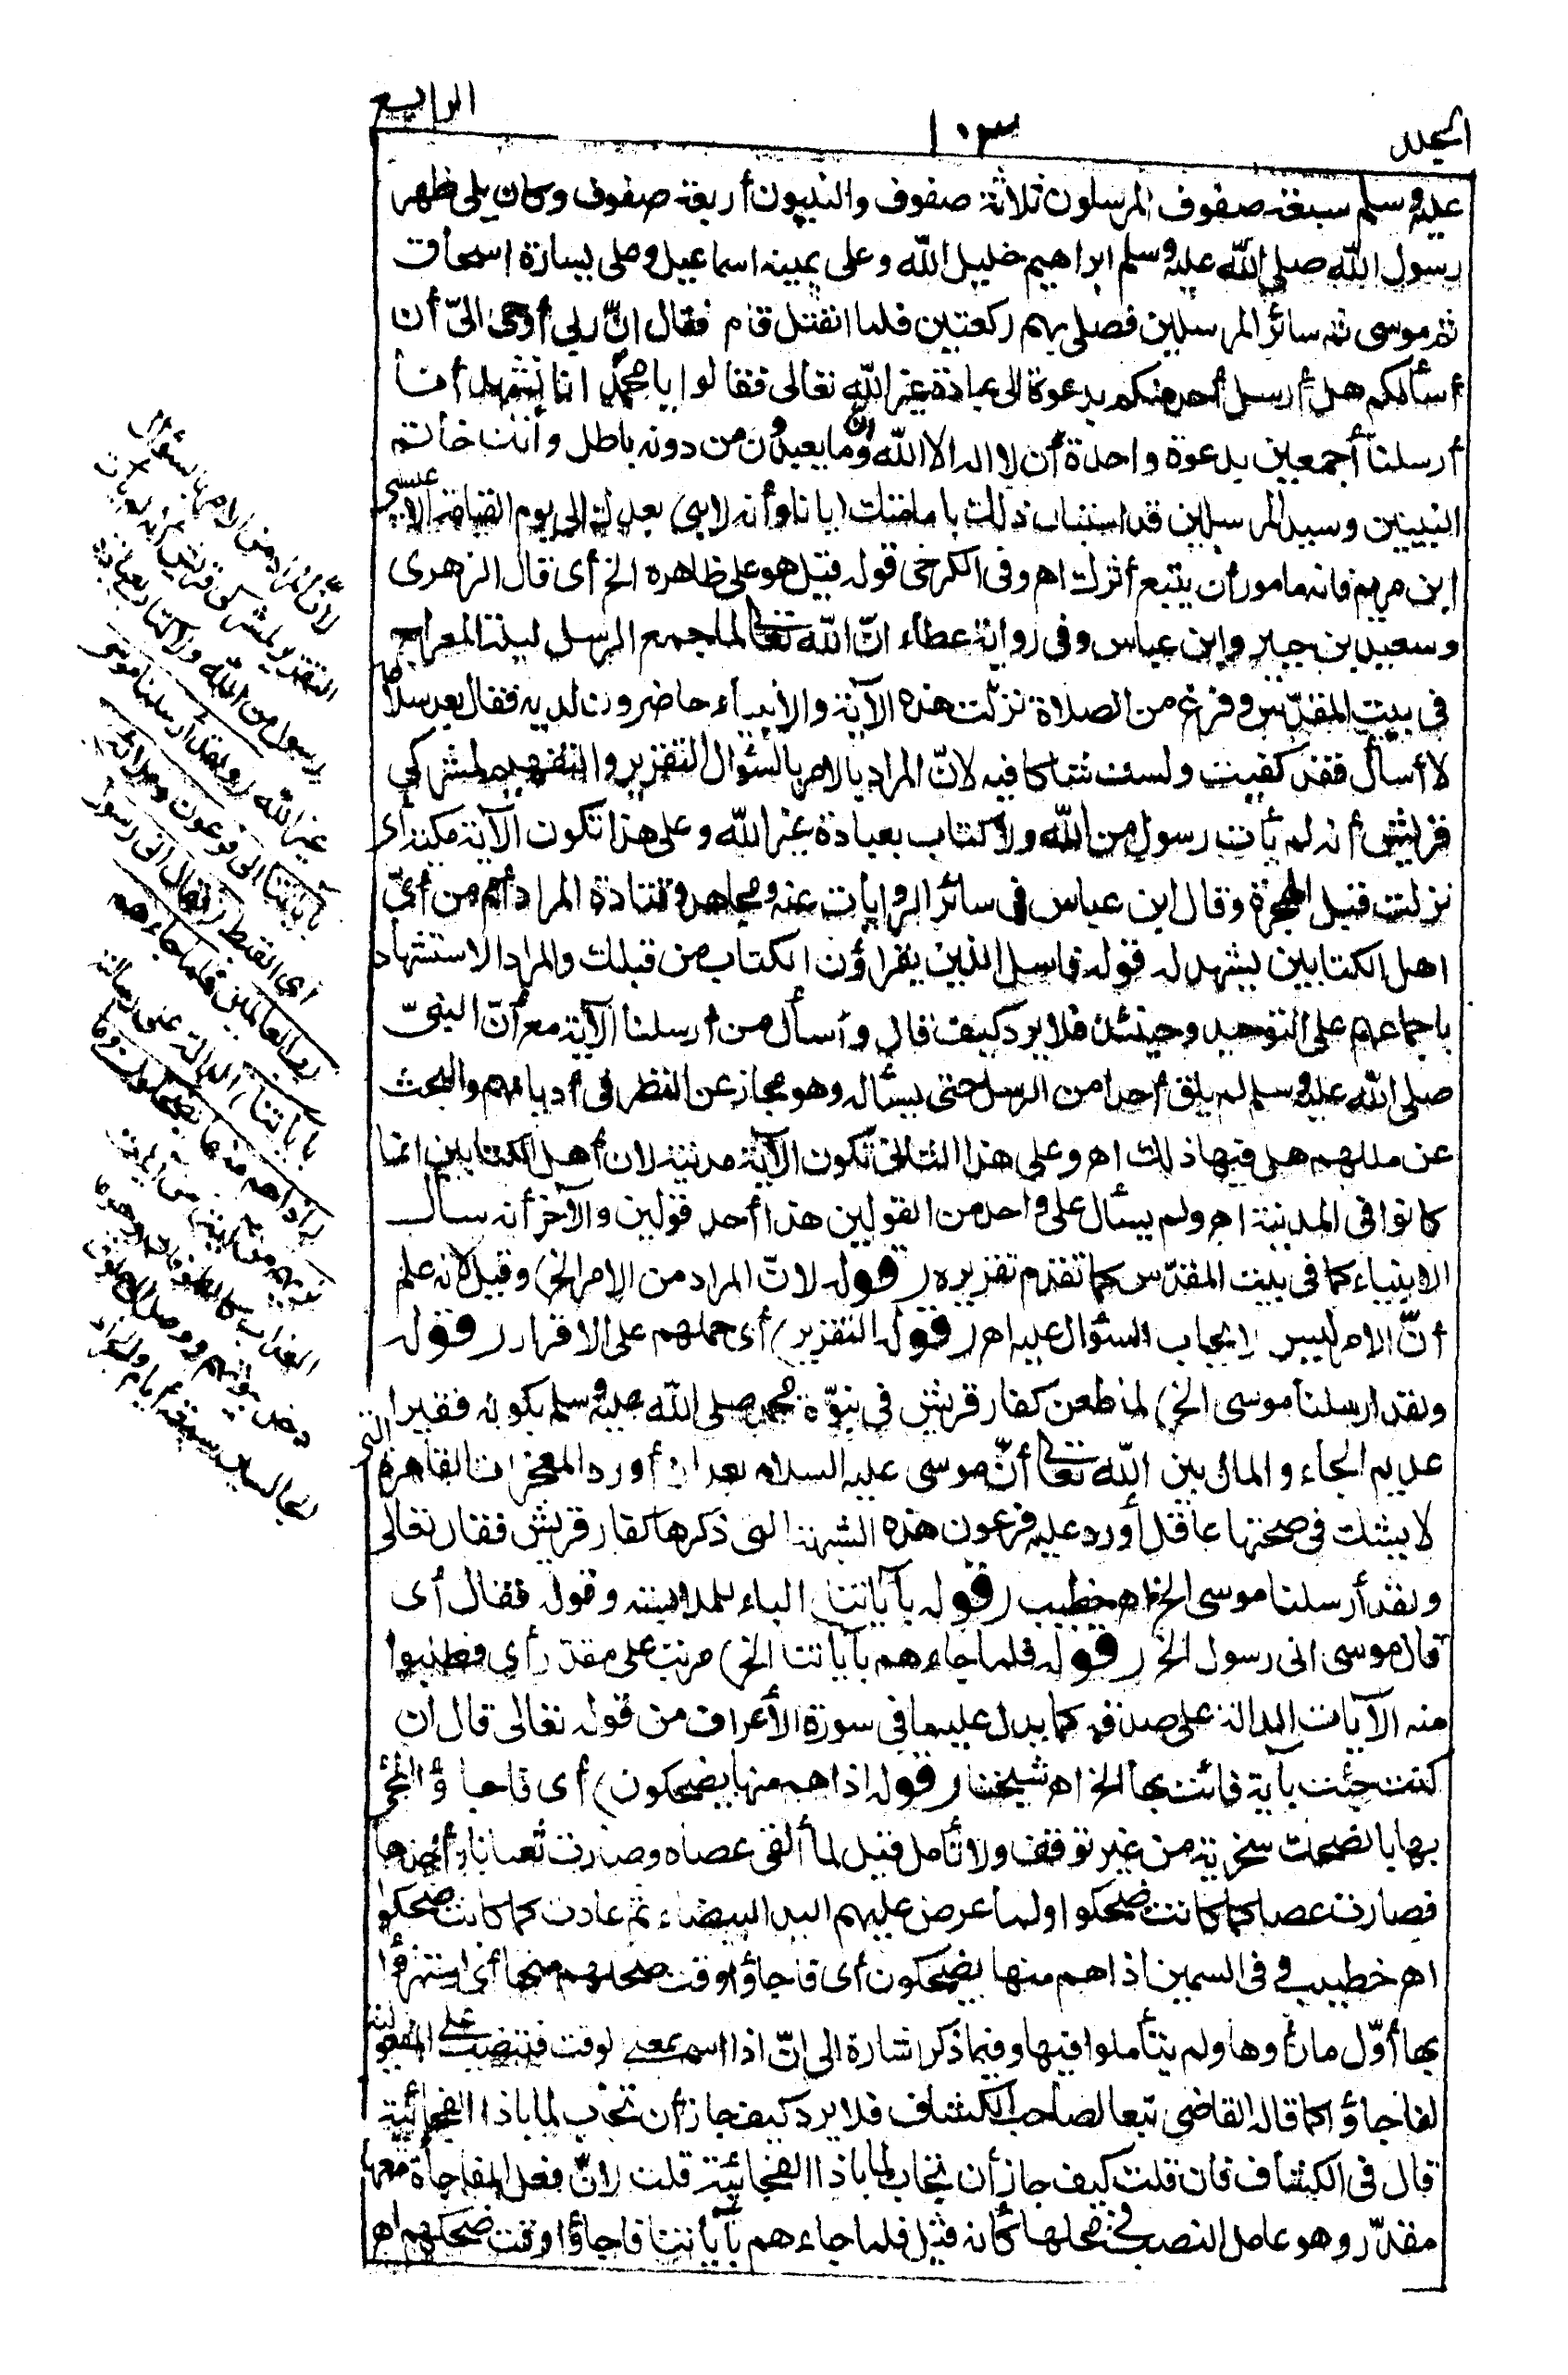 المجلد
١٠٣
الرابع
عليه وسلم سبعة صفوف المرسلون ثلاثة صفوف والنبيون أربعة صفوف وكان يلى ظهر
رسول الله صلى الله عليه وسلم ابراهيم خليل الله وعلى يمينه اسماعيل وعلى يساره اسحاق
ثم موسى ثم سائر المرسلين فصلى بهم ركعتين فلما انفتل قام فقال انّ ربى أوحى الىّ أن
أسألكم هل أرسل أحد منكم بدعوة الى عبادة غير الله تعالى فقالوا يا محمد انا نشهد أنا
أرسلنا أجمعين بدعوة واحدة أن لا اله الا الله وأن ما يعبدون من دونه باطل وأنت خاتم
النبيين وسيد المرسلين قد استبان ذلك بامامتك ايانا وأنه لا نبى بعدك الى يوم القيامة الا عيسى
ابن مريم فانه مامور أن يتبع أثرك اه وفى الكرخى قوله قيل هو على ظاهره الخ أى قال الزهرى
وسعيد بن جبير وابن عباس وفى رواية عطاء انّ الله تعالى لما جمع الرسل ليلة المعراج
فى بيت المقدّس وفرغ من الصلاة نزلت هذه الآية والأنبياء حاضرون لديه فقال بعد سلامه
لا أسأل فقد كفيت ولست شاكا فيه لانّ المراد بالامر بالسؤال التقرير والتفهيم لمشركى
قريش أنه لم يأت رسول من الله ولا كتاب بعبادة غير الله وعلى هذا تكون الآية مكية أى
نزلت قبل الهجرة وقال ابن عباس فى سائر الروايات عنه ومجاهد وقتادة المراد أمم من أىّ
اهل الكتابين يشهد له قوله فاسل الذين يقرأون الكتاب من قبلك والمراد الاستشهاد
باجماعهم على التوحيد وحينئذ فلا يرد كيف قال وأسأل من أرسلنا الآية مع أنّ النبىّ
صلى الله عليه وسلم لم يلق أحدا من الرسل حتى يسأله وهو مجاز عن النظر فى أديانهم والبحث
عن مللهم هل فيها ذلك اه وعلى هذا الثانى تكون الآية مدنية لان أهل الكتابين انما
كانوا فى المدينة اه ولم يسأل على واحد من القولين هذا أحد قولين والآخر أنه سأل
الانبياء كما فى بيت المقدّس كما تقدم تقريره (قوله لانّ المراد من الامر الخ) وقيل لانه علم
أنّ الامر ليس لايجاب السؤال عليه اه (قوله التقرير) أى حملهم على الاقرار (قوله
ولقد ارسلنا موسى الخ) لما طعن كفار قريش فى نبوّة محمد صلى الله عليه وسلم بكونه فقيرا
عديم الجاه والمال بين الله تعالى أنّ موسى عليه السلام بعد ان أورد المعجزات القاهرة التى
لا يشك فى صحتها عاقل أورد عليه فرعون هذه الشبهة التى ذكرها كفار قريش فقال تعالى
ولقد أرسلنا موسى الخ اه خطيب (قوله بآياتنا) الباء للملابسة وقوله فقال أى
قال موسى انى رسول الخ (قوله فلما جاءهم بآياتنا الخ) مرتب على مقدّر أى فطلبوا
منه الآيات الدالة على صدقه كما يدل عليه ما فى سورة الأعراف من قوله تعالى قال ان
كنت جئت بآية فائت بها الخ اه شيخنا (قوله اذا هم منها يضحكون) أى فاجاؤا المجئ
بها بالضحك سخرية من غير توقف ولا تأمل قيل لما ألقى عصاه وصارت ثعبانا وأخذها
فصارت عصا كما كانت ضحكوا ولما عرض عليهم اليد البيضاء ثم عادت كما كانت ضحكوا
اه خطيب وفى السمين اذا هم منها يضحكون أى فاجاؤا وقت ضحكهم منها أى استهزؤا
بها أوّل ما رأوها ولم يتأملوا فيها وفيما ذكر اشارة الى انّ اذا اسم بمعنى لوقت فتنصب على المفعولية
لفاجاؤا كما قاله القاضى تبعا لصاحب الكشاف فلا يرد كيف جاز أن تجاب لما باذا الفجائية
قال فى الكشاف فان قلت كيف جاز أن تجاب لما باذا الفجائية قلت لانّ فعل المفاجأة معها
مقدّر وهو عامل النصب فى محلها كأنه قيل فلما جاءهم بآياتنا فاجاؤا وقت ضحكهم اه
لانّ المراد من الامر بالسؤال
التقرير لمشركى قريش أنه لم يأت
رسول من الله ولا كتاب بعبادة
غير الله (ولقد أرسلنا موسى
بآياتنا الى فرعون وملائه)
أى القبط (فقال انى رسول
رب العالمين فلما جاءهم
بآياتنا) الدالة على رسالته
(اذا هم منها يضحكون وما
نريهم من آية) من آيات
العذاب كالطوفان وهو ماء
دخل بيوتهم ووصل الى حلوق
الجالسين سبعة أيام والجراد